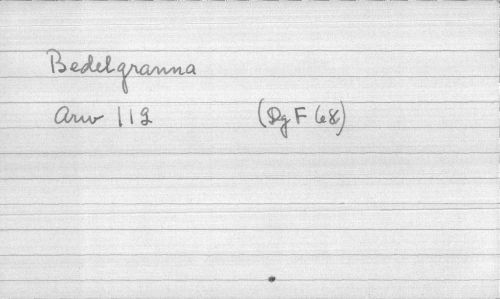 Bedelgranna
Arw 119 (Dg F 68)